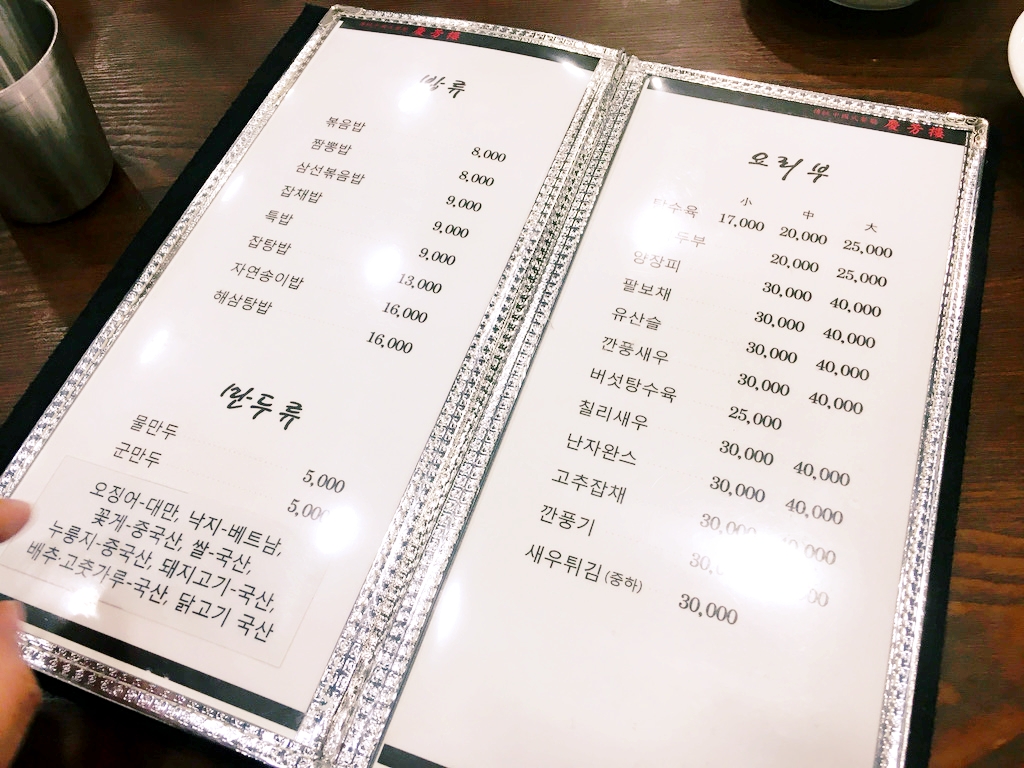 慶芳樓
밥류
볶음밥 8,000
짬뽕밥 8,000
삼선볶음밥 9,000
잡채밥 9,000
특밥 9,000
잡탕밥 13,000
자연송이밥 16,000
해삼탕밥 16,000
만두류
물만두 5,000
군만두 5,000
오징어-대만, 낙지-베트남,
꽃게-중국산, 쌀-국산,
누룽지-중국산, 돼지고기-국산,
배추·고춧가루-국산, 닭고기 국산
慶芳樓
요리부
小 中 大
탕수육 17,000 20,000 25,000
두부 20,000 25,000
양장피 30,000 40,000
팔보채 30,000 40,000
유산슬 30,000 40,000
깐풍새우 30,000 40,000
버섯탕수육 25,000
칠리새우 30,000 40,000
난자완스 30,000 40,000
고추잡채 30,000
깐풍기
새우튀김 (중하) 30,000